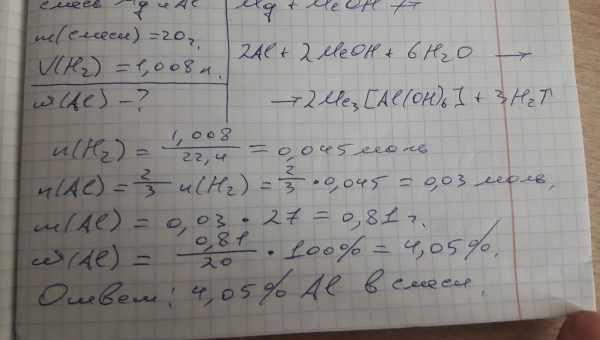 смесь Mg и Al
Mg + MeOH ↛
m(смеси) = 20 г.
V(H₂) = 1,008 л.
2Al + 2MeOH + 6H₂O →
ω(Al) – ?
→ 2Me₃[Al(OH)₆] + 3H₂↑
n(H₂) = 1,008/22,4 = 0,045 моль
n(Al) = 2/3 n(H₂) = 2/3 · 0,045 = 0,03 моль,
m(Al) = 0,03 · 27 = 0,81 г.
ω(Al) = 0,81/20 · 100% = 4,05%.
Ответ: 4,05% Al в смеси.